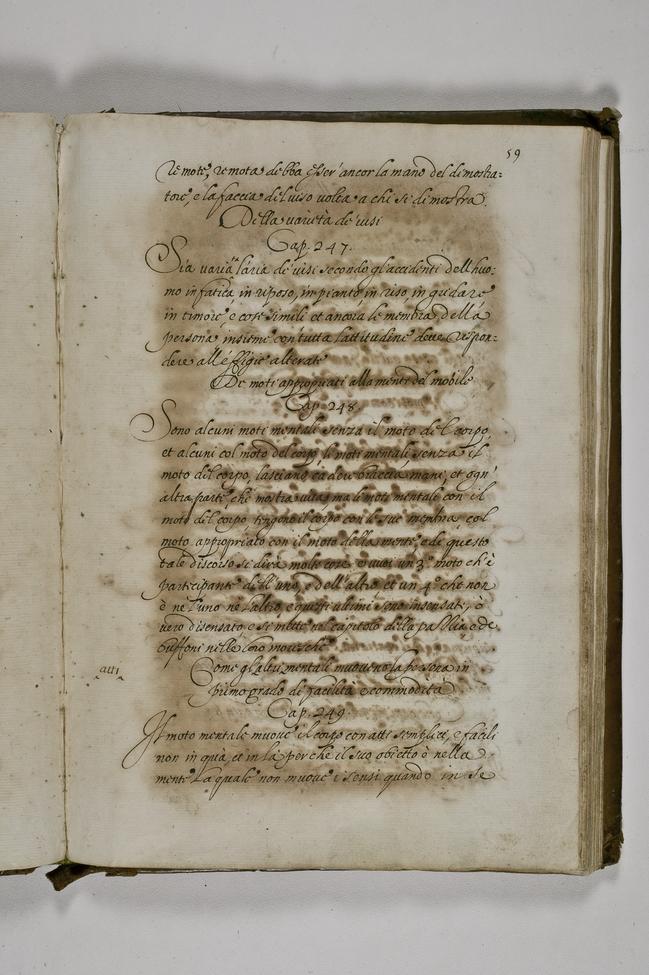 59
remote, remota debba esser' ancor la mano del dimostra:
tore, e la faccia del uiso uolta a chi si dimostra.
Della uarietà de uisi
Cap. 247.
Sia uaria l'aria de uisi secondo gl'accidenti dell'huo:
mo in fatica, in riposo, in pianto, in riso, in gridare
in timore, e cose simili et ancora le membra della
persona insieme con tutta l'attitudine deue respon:
dere all'effigie alterate
De moti appropriati alla mente del mobile
Cap. 248.
Sono alcuni moti mentali senza il moto del corpo,
et alcuni col moto del corpo, li moti mentali senza il
moto del corpo, lasciano cadere braccia mani, et ogn'
altra parte, che mostra uita, ma li moti mentali con il
moto del corpo tengono il corpo con le sue membra col
moto appropriato con il moto della mente, e de questo
tale discorso se dirà molte cose, e uuoi un 3° moto ch'è
partecipante dell'uno, e dell'altro, et un 4° che non
è ne l'uno ne l'altro, e questi ultimi sono insensati, ò
uero disensato, e si mette nel capitolo della pazzia, e de
buffoni nelle loro moresche
atti
Come gl'altri mentali muoueno la persona in
primo grado di facilità e commodità
Cap. 249.
Il moto mentale muoue il corpo con atti semplici, e facili
non in quà, et in là, perché il suo obietto è nella
mente La quale non muoue i sensi quando in se